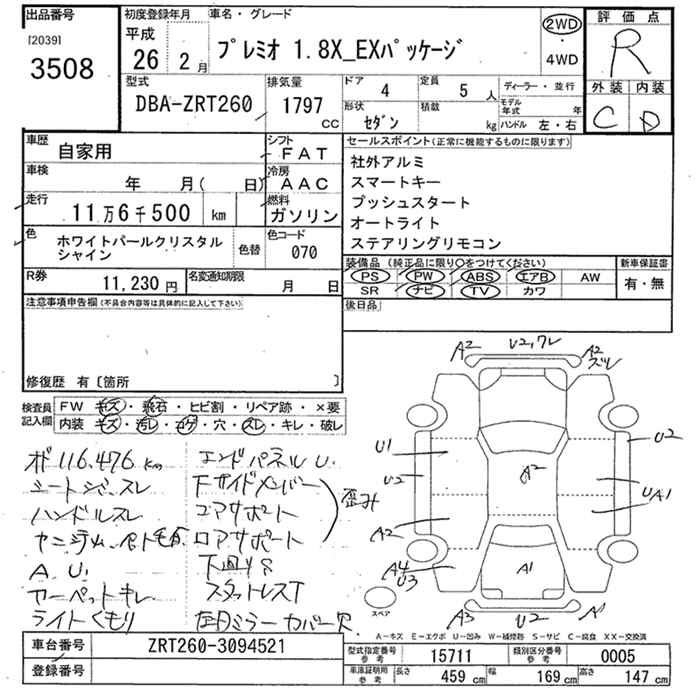 出品番号
[2039]
3508
初度登録年月
平成
26 2 月
車名・グレード
プレミオ 1.8X_EXパッケージ
2WD
・
4WD
評価点
R
外装 内装
C D
型式
DBA-ZRT260
排気量
1797
CC
ドア
4
定員
5 人
形状
セダン
積載
kg
ディーラー・並行
モデル年式 年
ハンドル 左・右
車歴
自家用
シフト
FAT
車検
年 月( 日)
冷房
AAC
走行
11万6千500 km
燃料
ガソリン
色
ホワイトパールクリスタル
シャイン
色替
色コード
070
R券
11,230 円
名変通知期限
月 日
セールスポイント(正常に機能するものに限ります)
社外アルミ
スマートキー
プッシュスタート
オートライト
ステアリングリモコン
装備品(純正品に限り〇をつけてください)
PS PW ABS エアB AW
SR ナビ TV カワ
新車保証書
有・無
後日品
注意事項申告欄(不具合内容等は具体的に記入して下さい)
修復歴 有〔箇所 〕
検査員
記入欄
FW キズ・飛石・ヒビ割・リペア跡・×要
内装 キズ・汚レ・コゲ・穴・スレ・キレ・破レ
116,476 km
シートシミ、スレ
ハンドルスレ
A、U、
カーペットキレ
ライトくもり
エンドパネルU、
下サイドメンバー
コアサポート
ロアサポート
歪み
下回りS
スタットレスT
左目ミラーカバー欠
A2
U2,ワレ
A2
ズレ
U1
U2
U2
A2
UA1
A2
A4
U3
A1
A3
U2
A1
スペア
A−キズ E−エクボ U−凹み W−補修跡 S−サビ C−腐食 XX−交換済
車台番号
ZRT260-3094521
登録番号
型式指定番号
参考
15711
類別区分番号
参考
0005
車庫証明用
参考
長さ 459 cm
幅 169 cm
高さ 147 cm